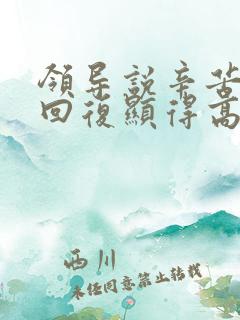 領导説辛苦
回復顯得高
西川
未经同意禁止转载